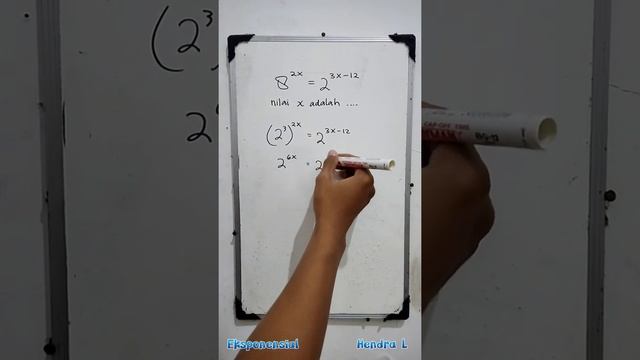 8^{2x} = 2^{3x-12}
nilai x adalah ....
(2^3)^{2x} = 2^{3x-12}
2^{6x} = 2
Eksponensial Hendra L